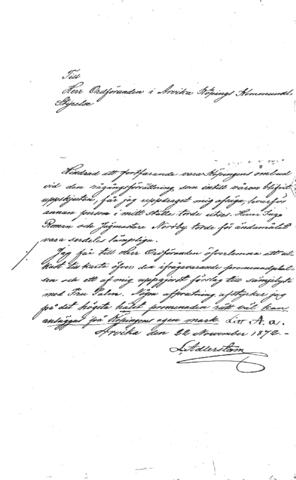 Till
Herr Ordföranden i Arvika Köpings Kommunal-
Styrelse
Hindrad att fortfarande vara Köpingens ombud
vid den vägingsförrättning som intill våren blifvit
uppskjuten, får jag uppdraget mig afsäga, hvarför
annan person i mitt ställe torde utses. Herr Inge
och Jägmästare Nordby torde för ändamålet
vara särdeles lämpliga.
Jag får till Herr Ordföranden öfverlemna ett ut-
kast till karta öfver den ifrågavarande promenadplat-
sen och ett af mig uppgjordt förslag till
med Fru Palm. Någon afstyrker jag
på det högsta helst promenaden rätt väl kan
anläggas på Köpingens egen mark Litt A. a.
Arvika den 22 November 1872 -
LAdlerstam